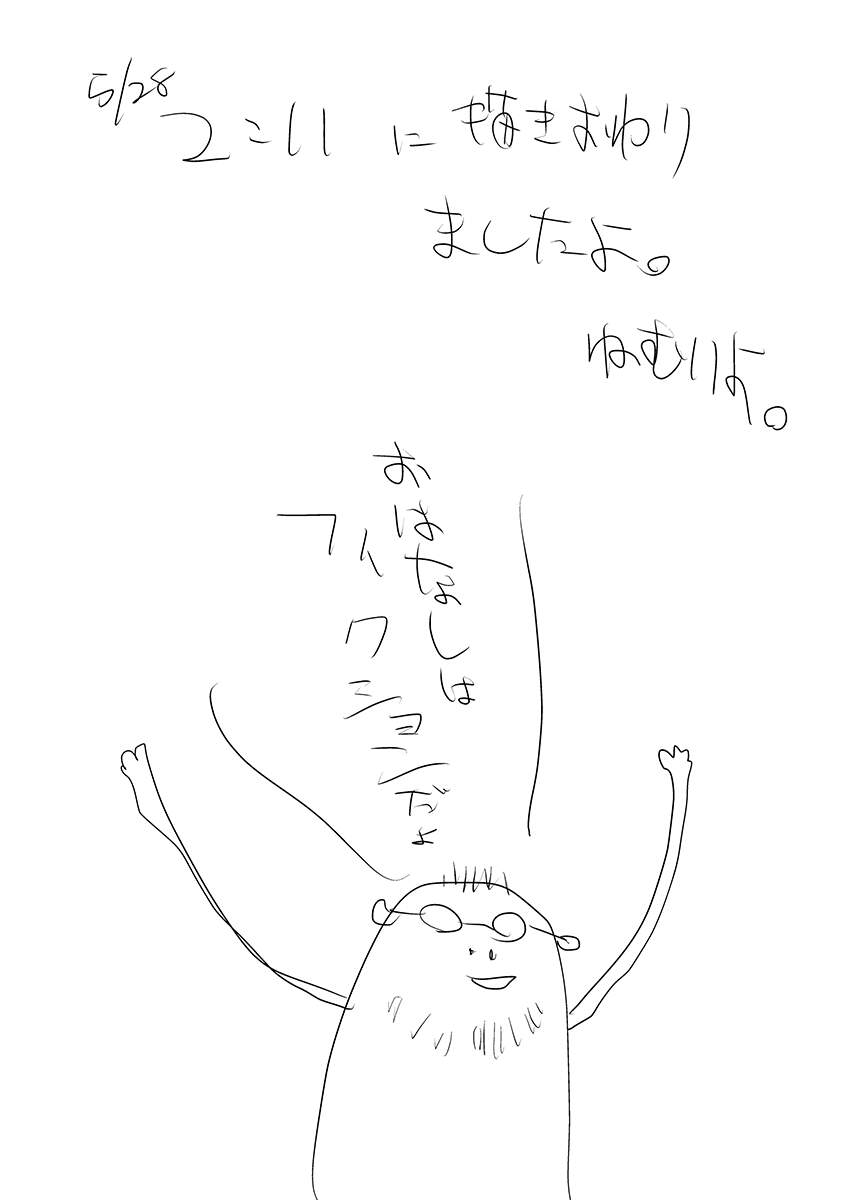 5/28
2:11 に描きおわり
ましたよ。
ねむいよ。
おはなしは
フィクションだよ